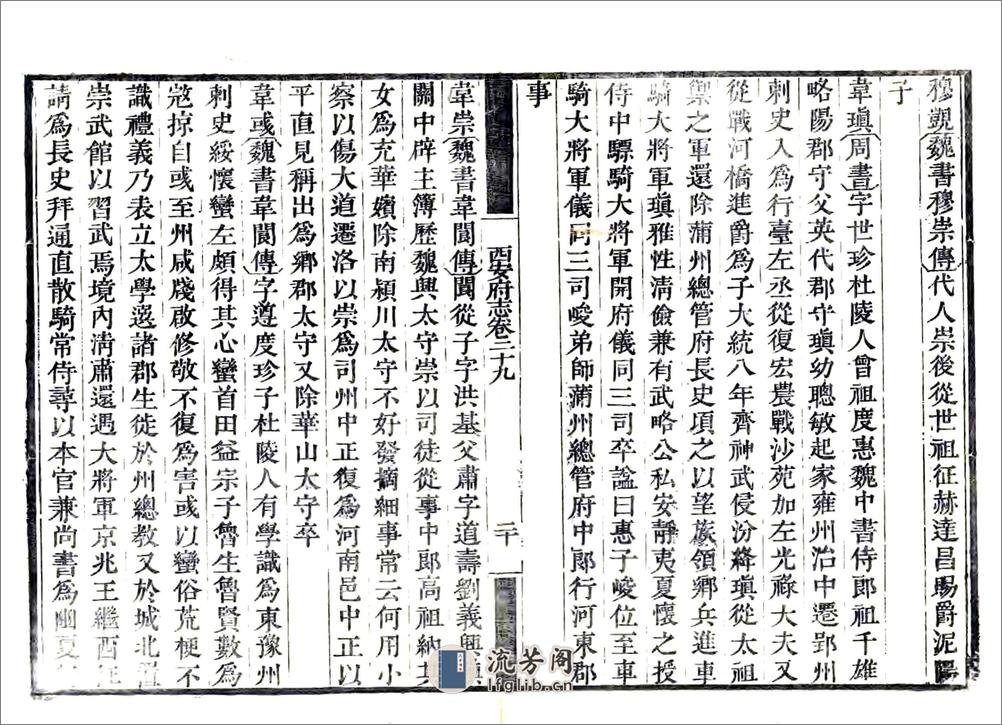 穆觀魏書穆崇傳代人崇後從世祖征赫達昌賜爵泥陽
子
韋瑱周書字世珍杜陵人曾祖度惠魏中書侍郎祖千雄
略陽郡守父英代郡守瑱幼聰敏起家雍州治中遷鄀州
刺史入為行臺左丞從復宏農戰沙苑加左光祿大夫又
從戰河橋進爵為子大統八年齊神武侵汾絳瑱從太祖
禦之軍還除蒲州總管府長史項之以望族領鄉兵進車
騎大將軍瑱雅性清儉兼有武略公私安靜夷夏懷之授
侍中驃騎大將軍開府儀同三司卒諡曰惠子峻位至車
騎大將軍儀同三司峻弟師蒲州總管府中郎行河東郡
事
西安府志卷二十九
二十
韋崇魏書韋閬傳閬從子字洪基父肅字道壽劉義興鎮
關中辟主簿歷魏興太守崇以司徒從事中郎高祖納其
女為充華嬪除南潁川太守不好發摘細事常云何用小
察以傷大道遷洛以崇為司州中正復為河南邑中正以
平直見稱出為鄉郡太守又除華山太守卒
韋彧魏書韋閬傳字遵度珍子杜陵人有學識為東豫州
刺史綏懷蠻左頗得其心蠻首田益宗子魯生魯賢數為
寇掠自彧至州咸牋啟修敬不復為害彧以蠻俗荒梗不
識禮義乃表立太學選諸郡生徒於州總教又於城北置
崇武館以習武焉境內清肅還遇大將軍京兆王繼西征
請為長史拜通直散騎常侍尋以本官兼尚書為豳夏
流芳阁
lfglib.cn